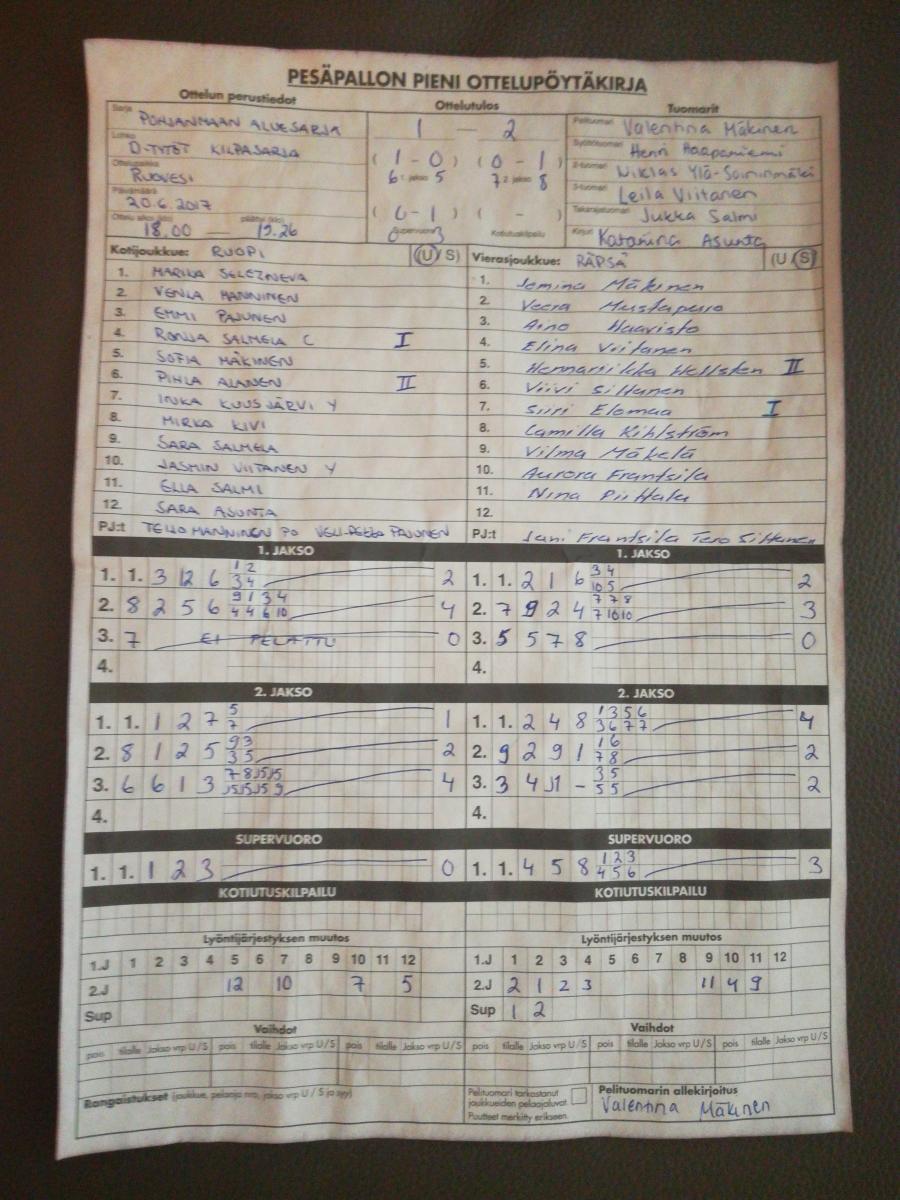 PESÄPALLON PIENI OTTELUPÖYTÄKIRJA
Ottelun perustiedot
Ottelutulos
Tuomarit
Sarja POHJANMAAN ALUESARJA
Lohko D-TYTÖT KILPASARJA
Ottelupaikka RUOVESI
Päivämäärä 20.6.2017
Ottelu alkoi (klo) 18.00 — päättyi (klo) 19.26
1 — 2
( 1 - 0 ) ( 0 - 1 )
6 1. jakso 5 7 2. jakso 8
( 0 - 1 ) ( - )
0 Supervuoro 3 Kotiutuskilpailu
Pelituomari Valentina Mäkinen
Syöttötuomari Henri Haapaniemi
2-tuomari Niklas Ylä-Soininmäki
3-tuomari Leila Viitanen
Takarajatuomari Jukka Salmi
Kirjuri Katariina Asunta
Kotijoukkue: RUOPI (U/S)
1. MARIKA SELEZNEVA
2. VENLA MANNINEN
3. EMMI PAJUNEN
4. RONJA SALMELA C I
5. SOFIA MÄKINEN
6. PIHLA ALANEN II
7. INKA KUUSJÄRVI Y
8. MIRKA KIVI
9. SARA SALMELA
10. JASMIN VIITANEN Y
11. ELLA SALMI
12. SARA ASUNTA
PJ:t TEIJO MANNINEN PO VELI-PEKKA PAJUNEN
Vierasjoukkue: RÄPSÄ (U/S)
1. Jemina Mäkinen
2. Veera Mustapuro
3. Aino Haavisto
4. Elina Viitanen
5. Hennariikka Hellsten II
6. Viivi Siltanen
7. Siiri Elomaa I
8. Camilla Kihlström
9. Vilma Mäkelä
10. Aurora Frantsila
11. Nina Piittala
12.
PJ:t Jani Frantsila Tero Siltanen
1. JAKSO
1. 1. 3 12 6 1 2 2
3 4
2. 8 2 5 6 9 1 3 4 4
4 4 6 10
3. 7 EI PELATTU 0
4.
1. JAKSO
1. 1. 2 1 6 3 4 2
10 5
2. 7 9 2 4 7 7 8 3
7 10 10
3. 5 5 7 8 0
4.
2. JAKSO
1. 1. 1 2 7 5 1
7
2. 8 1 2 5 9 3 2
3 5
3. 6 6 1 3 7 8 J5 J5 4
J5 J5 J5 9
4.
2. JAKSO
1. 1. 2 4 8 1 3 5 6 4
3 6 7 7
2. 9 2 9 1 1 6 2
7 8
3. 3 4 J1 - 3 5 2
5 5
4.
SUPERVUORO
1. 1. 1 2 3 0
SUPERVUORO
1. 1. 4 5 8 1 2 3 3
4 5 6
KOTIUTUSKILPAILU
KOTIUTUSKILPAILU
Lyöntijärjestyksen muutos
1.J 1 2 3 4 5 6 7 8 9 10 11 12
2.J 12 10 7 5
Sup
Lyöntijärjestyksen muutos
1.J 1 2 3 4 5 6 7 8 9 10 11 12
2.J 2 1 2 3 4 11 4 9
Sup 1 2
Vaihdot
pois tilalle Jakso vrp U/S pois tilalle Jakso vrp U/S pois tilalle Jakso vrp U/S
Vaihdot
pois tilalle Jakso vrp U/S pois tilalle Jakso vrp U/S pois tilalle Jakso vrp U/S
Rangaistukset (joukkue, pelaaja nro, jakso vrp U / S ja syy)
Pelituomari tarkastanut
joukkueiden pelaajaluvat.
Puutteet merkitty erikseen.
Pelituomarin allekirjoitus
Valentina Mäkinen